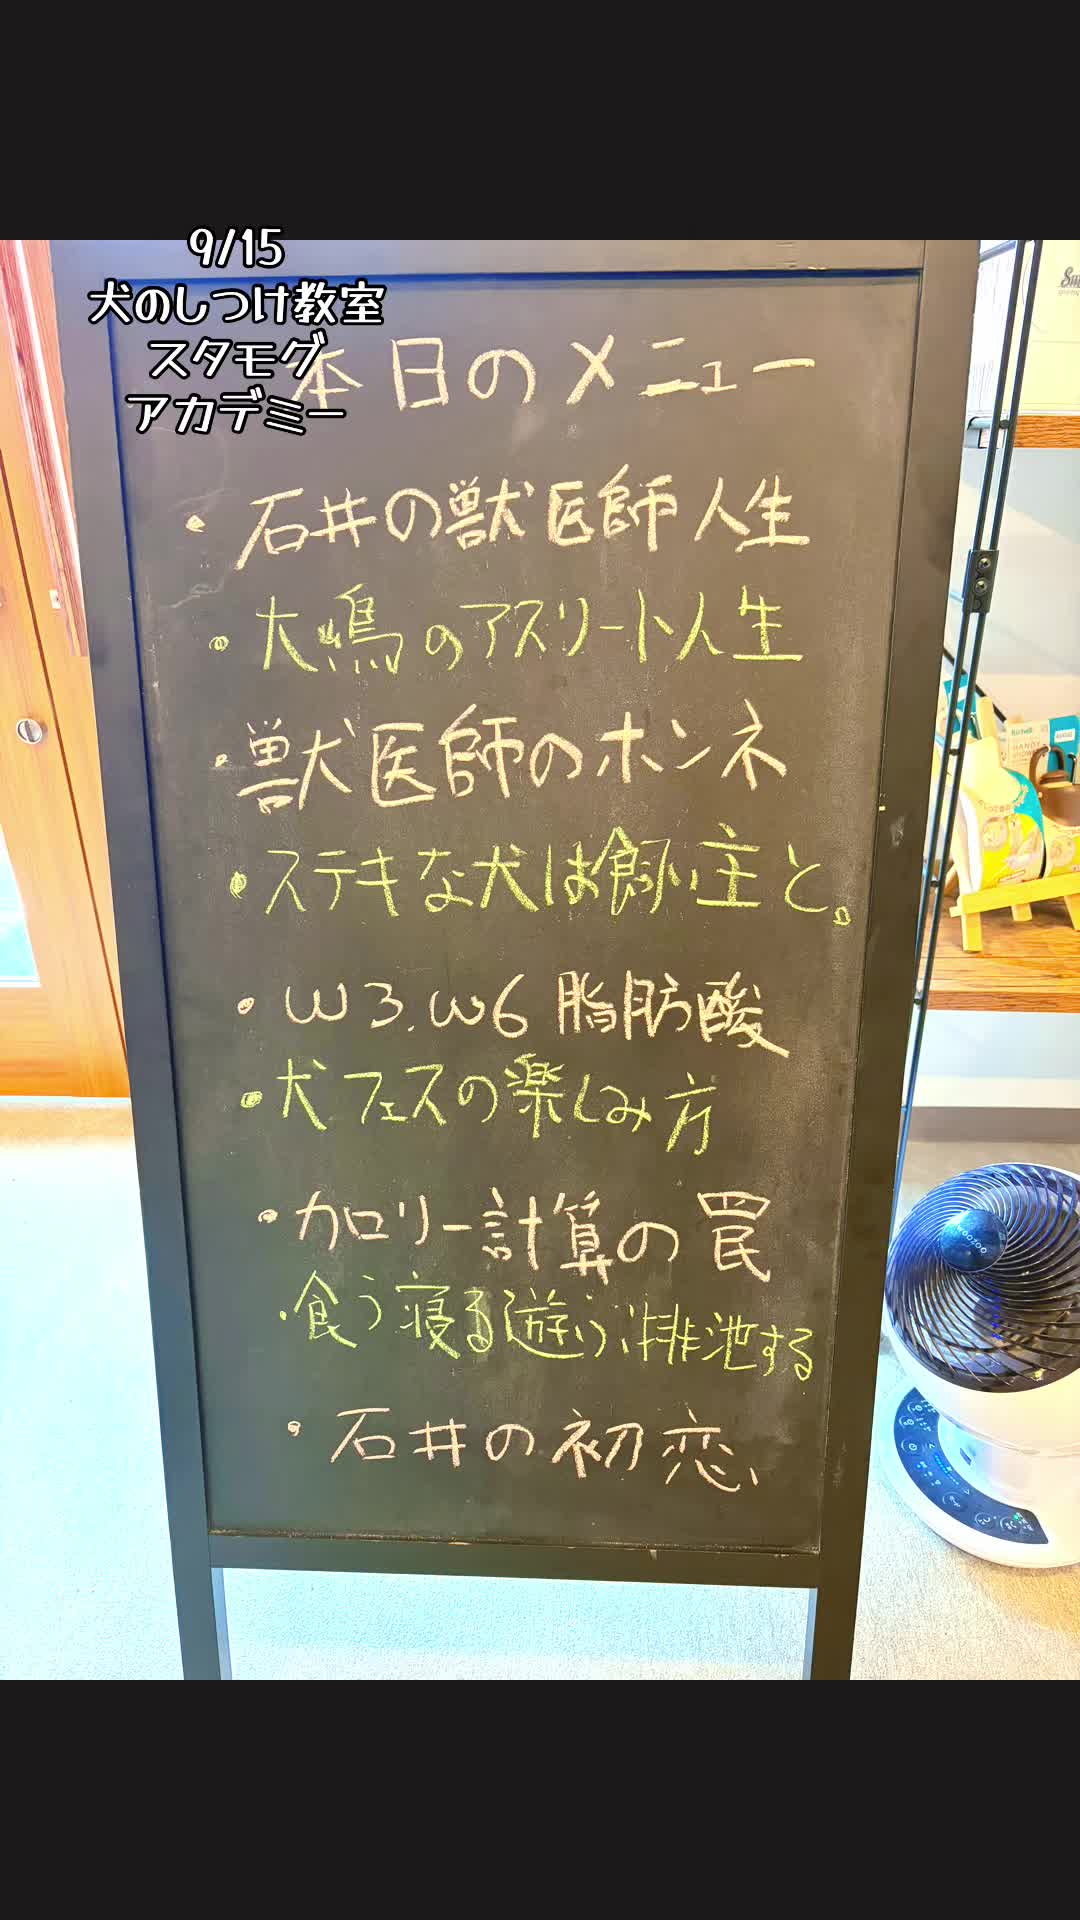 9/15
犬のしつけ教室
スタモグ
アカデミー
本日のメニュー
・石井の獣医師人生
・大嶋のアスリート人生
・獣医師のホンネ
・ステキな犬は飼い主と。
・ω3.ω6脂肪酸
・犬フェスの楽しみ方
・カロリー計算の罠
・食う寝る遊ぶ排泄する
・石井の初恋
WOOZOO